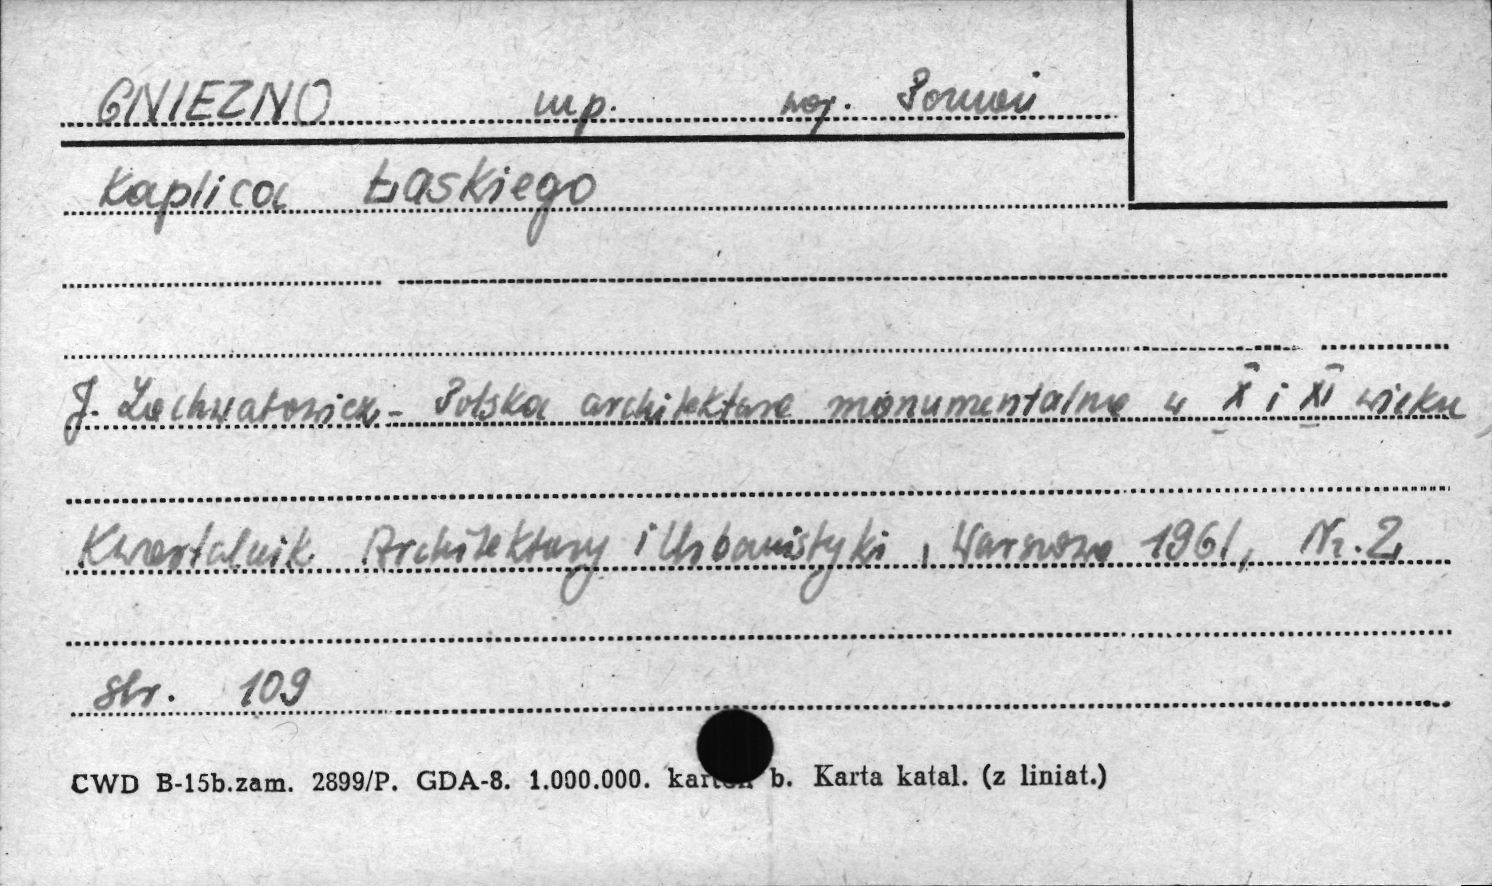 GNIEZNO mp. woj. Poznań
Kaplica Łaskiego
J. Zachwatowicz - Polska architektura monumentalna w X i XI wieku,
Kwartalnik Architektury i Urbanistyki, Warszawa 1961, Nr. 2,
str. 109
CWD B-15b.zam. 2899/P. GDA-8. 1.000.000. karton b. Karta katal. (z liniat.)